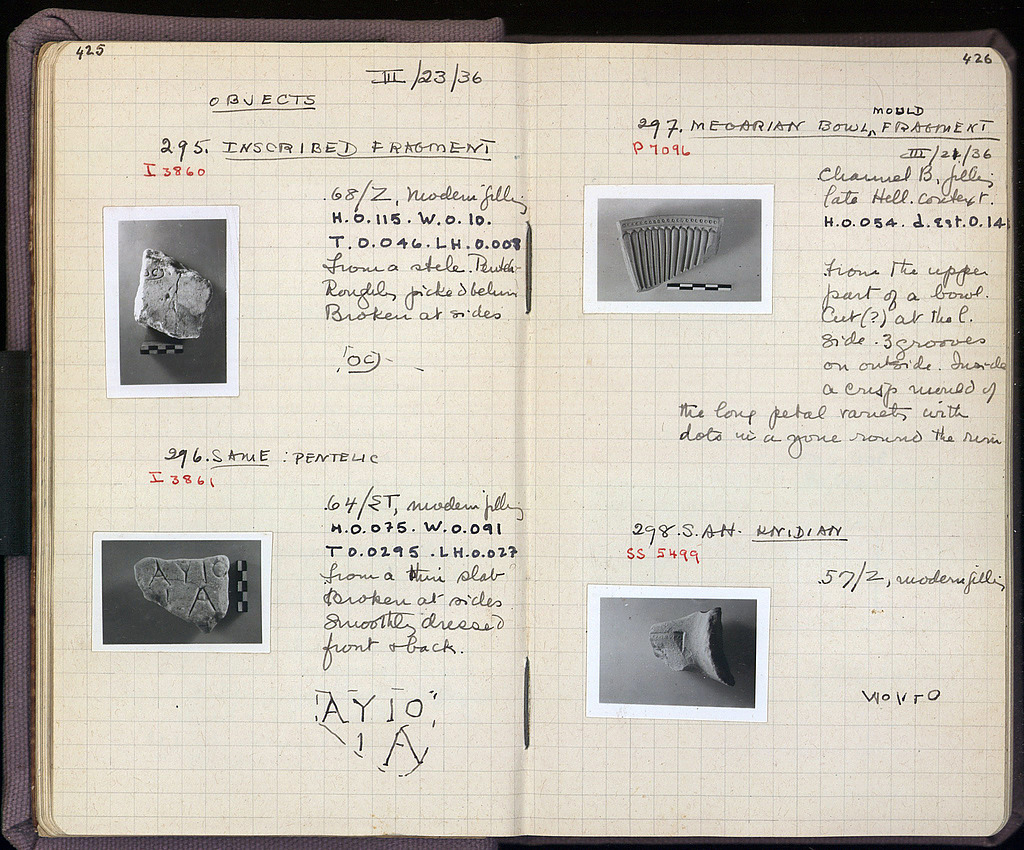 425
III/23/36
OBJECTS
295. INSCRIBED FRAGMENT
I 3860
68/Z, modern filling
H.0.115. W.0.10.
T.0.046. LH.0.008
From a stele. Pentel-
Roughly picked behind
Broken at sides
OC
296. SAME : PENTELIC
I 3861
64/ΣΤ, modern filling
H.0.075. W.0.091
T 0.0295. LH.0.027
From a thin slab
Broken at sides
Smoothly dressed
front & back.
AYIO
IA
426
MOULD
297. MEGARIAN BOWL FRAGMENT
P 7096
III/21/36
Channel B, filling
late Hell. context.
H.0.054. d. est. 0.14
From the upper
part of a bowl.
Cut(?) at the l.
side. 3 grooves
on outside. Inside
a crisp mould of
the long petal variety with
dots in a zone round the rim
298. S.AH. KNIDIAN
SS 5499
57/Z, modern filling